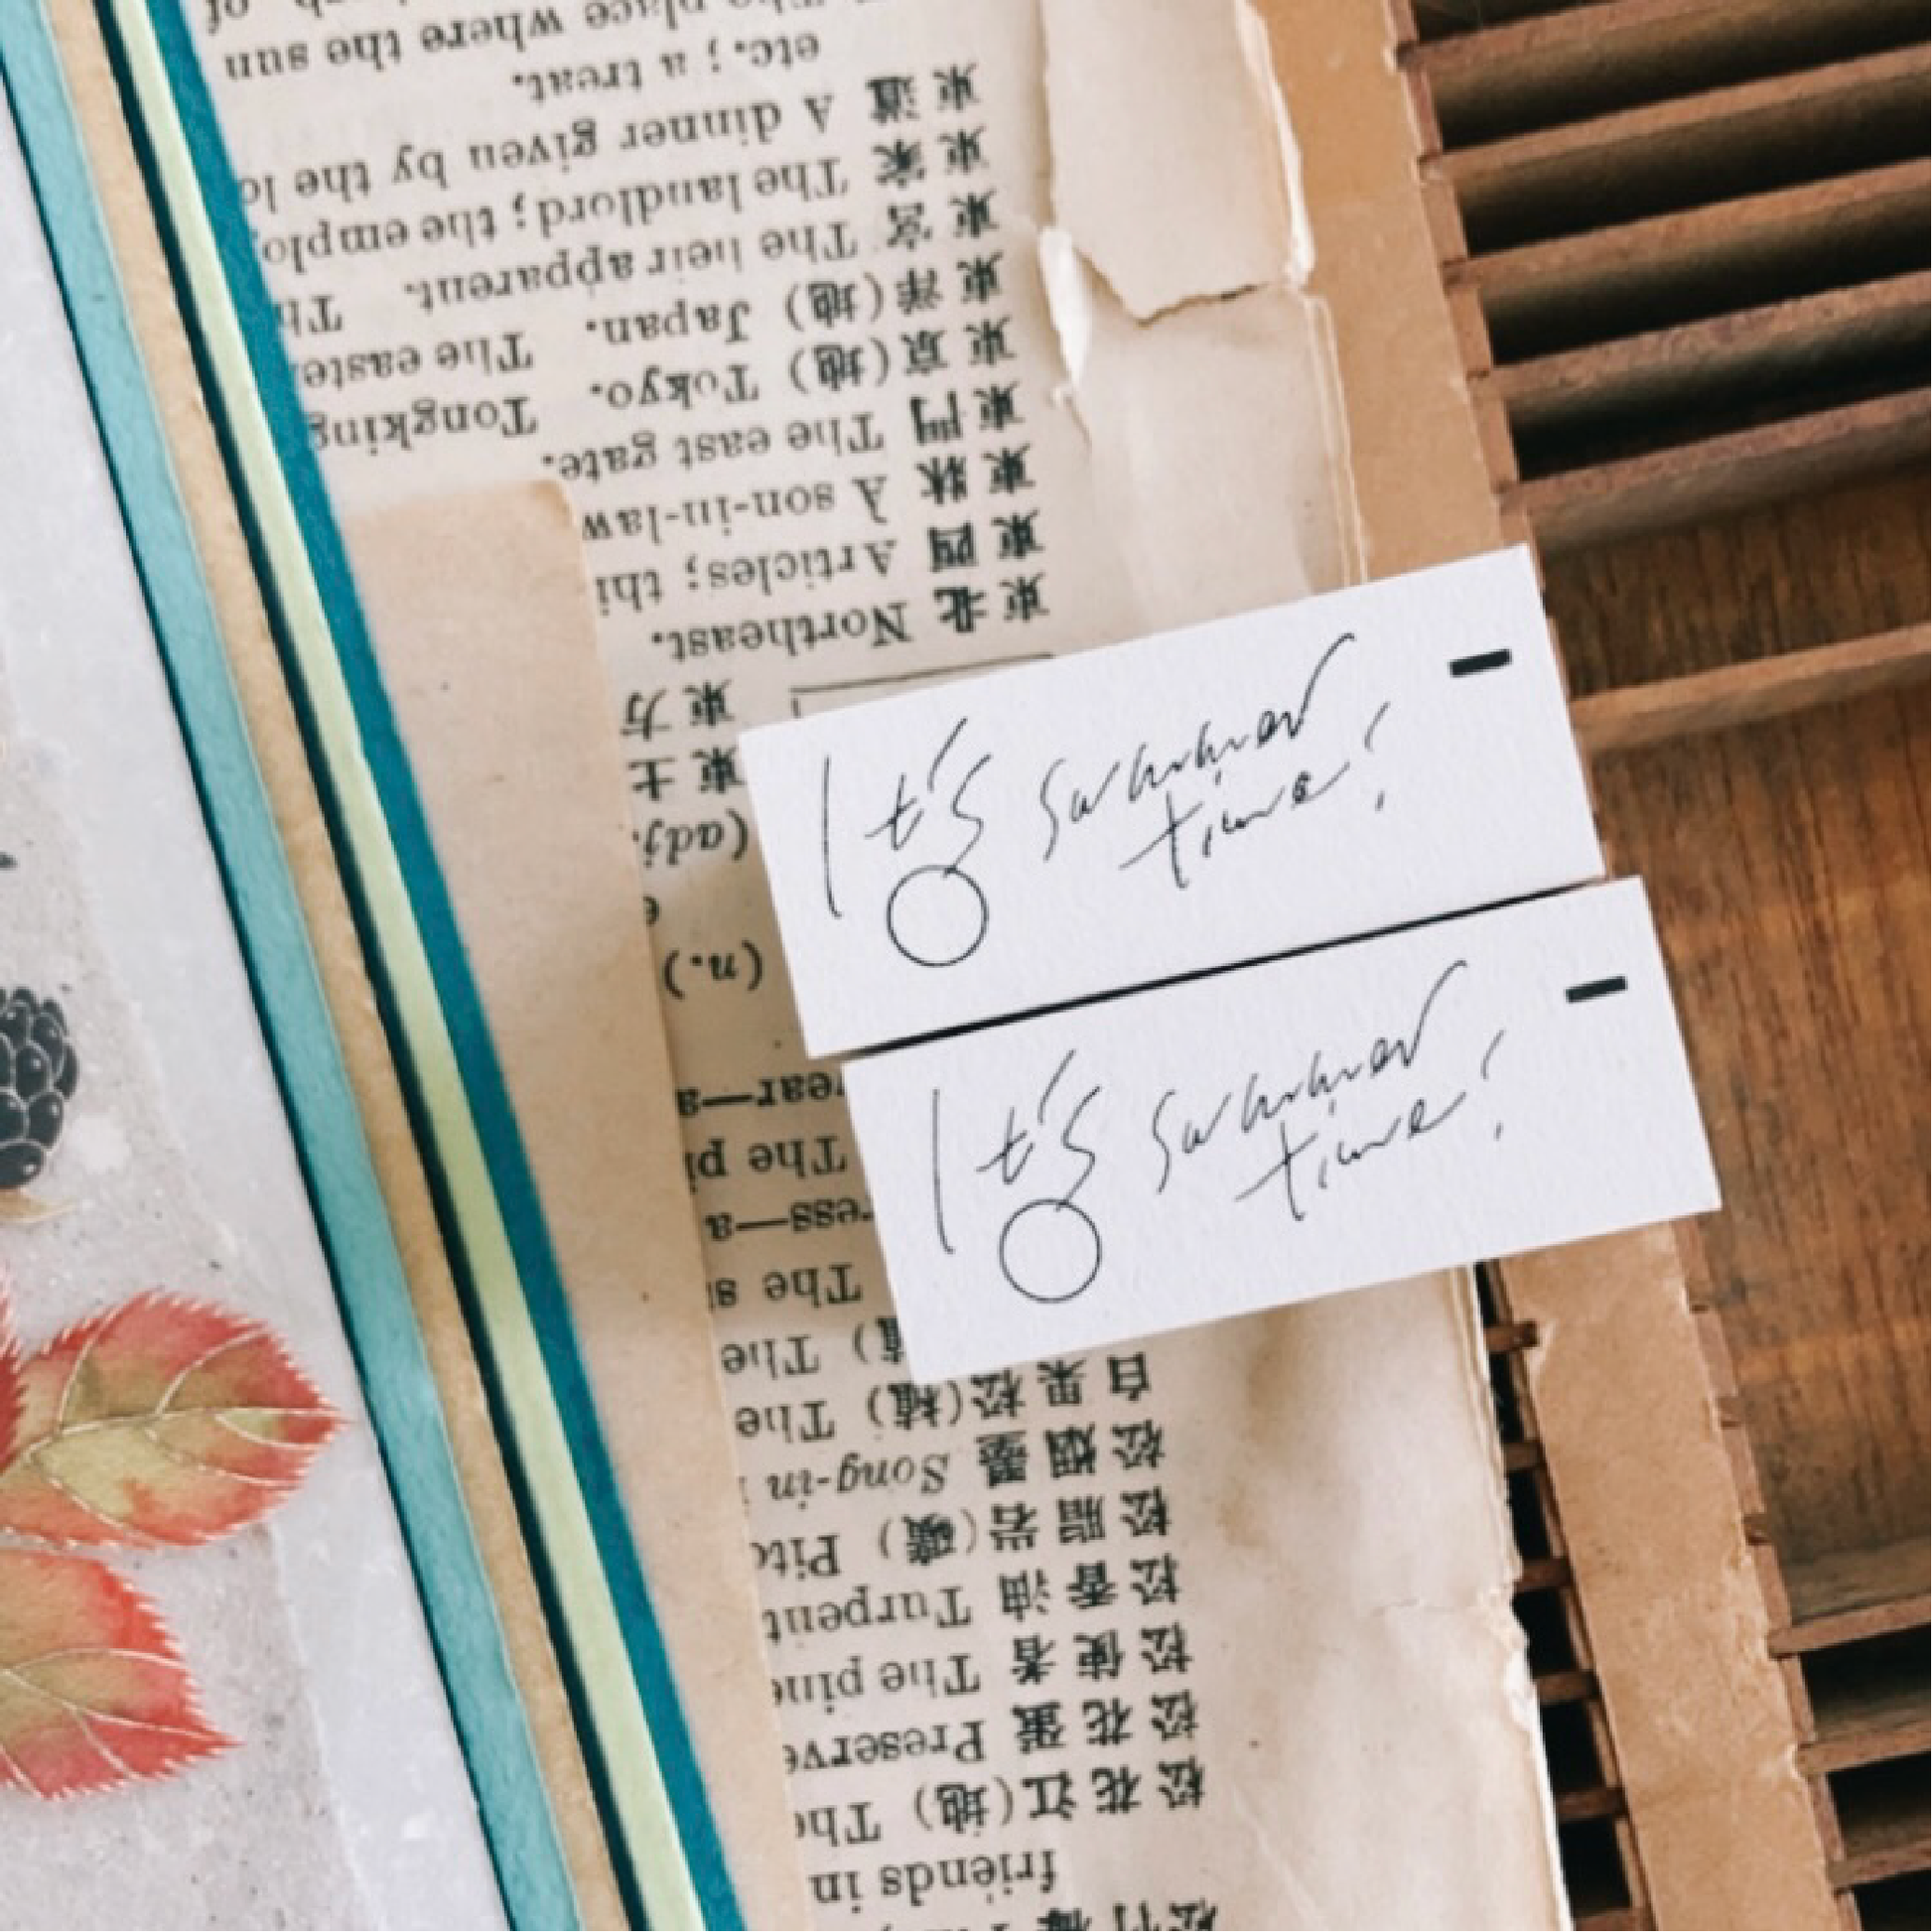 It's summer
time!
It's summer
time!
松竹梅
friends in
松花江(地) The
松花蛋 Preserve
松使者 The pin
松香油 Turpent
松脂岩(礦) Pitc
松烟墨 Song-in
白果松(植) The
) The
The
ress—a
The pi
year—a
(n.)
(adj.
東土
東方
東北 Northeast.
東西 Articles; thi
東牀 A son-in-law
東門 The east gate.
東京(地) Tokyo. Tongking
東洋(地) Japan. The easte
東宮 The heir apparent. Th
東家 The landlord; the emplo
東道 A dinner given by the lo
etc.; a treat.
The place where the sun
of